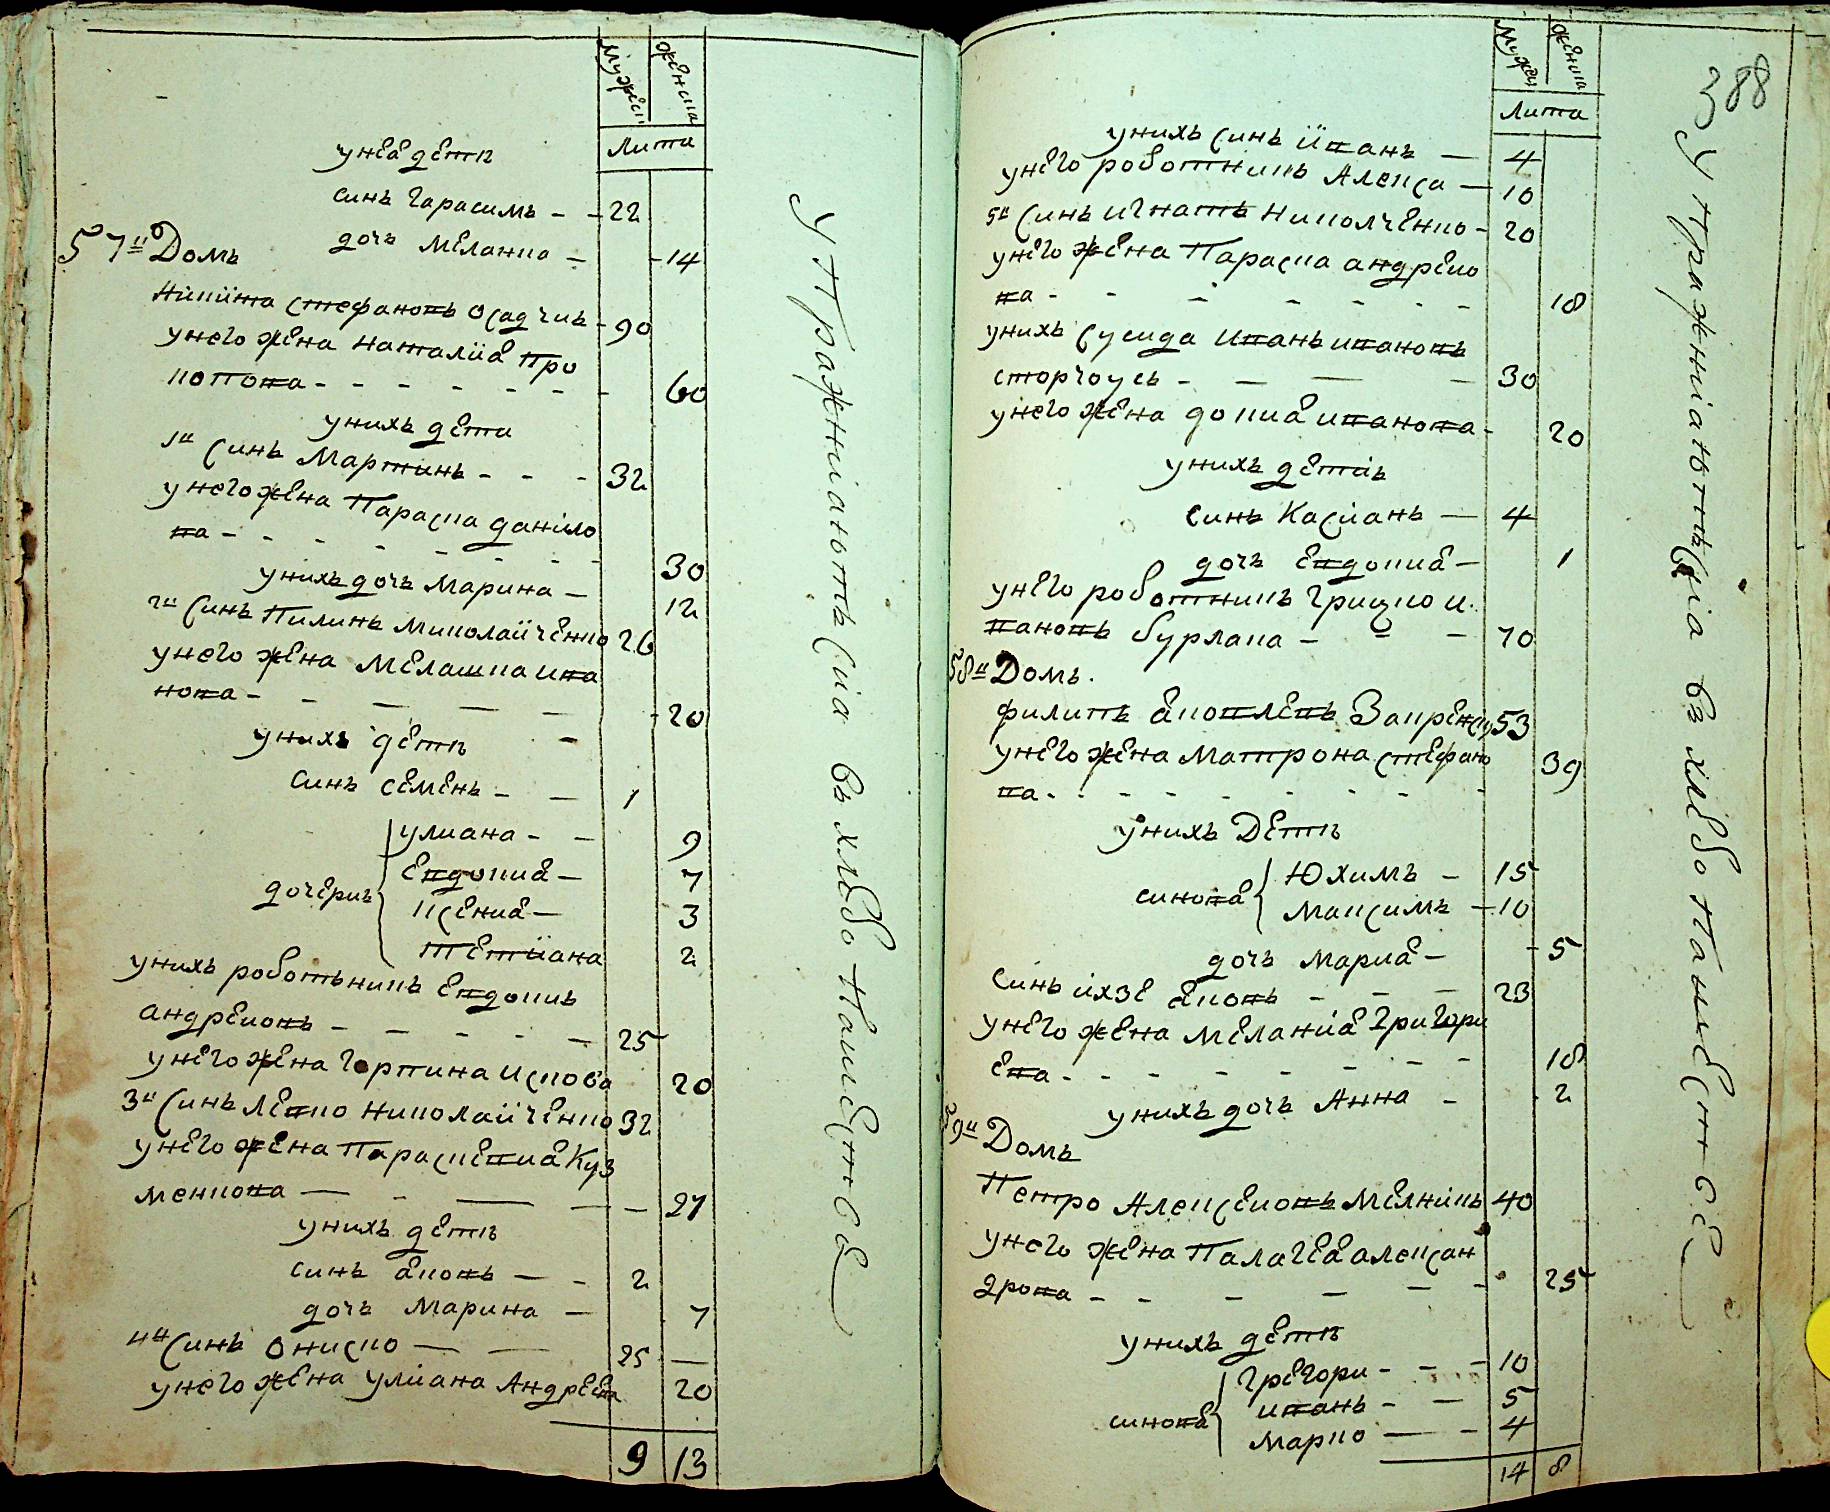 мужеи женпа
Лита
унеа дети
синь Гарасимъ - - 22
дочъ меланка - - 14
57й Домъ
Никита стефановъ Осадчик - 90
унего жена наталиа про
копова - - - - - - - 60
унихъ дети
1й Синь Мартинъ - - - 32
унего жена Параска данило
ва - - - - - - - 30
унихъ дочъ Марина - 12
2й Синь Пилипъ миколайченко 26
унего жена Мелашка ива
нова - - - - - 20
унихъ дети -
синь семенъ - - 1
дочеривъ
улиана - - 9
Евдокиа - 7
Ксениа - 3
тетиана 2
унихъ роботьникъ Евдокимъ
андреиовъ - - - - - 25
унего жена Горпина искова 20
3й Синь левко николайченко 32
унего жена Параскевиа Куз
менкова - - - - - 27
унихъ дети
синь аковъ - - 2
дочъ Марина - 7
4й Синь Ониско - - 25 -
унего жена улиана Андреева 20
9 13
Упражніаютьсіа въ хлѣбопашестве
388
мужеи женпа
Лита
унихъ синь иванъ - 4
унего роботникъ Алекса - 10
5й Синь игнатъ никопченко - 20
унего жена Параска андреио
ва - - - - - - 18
унихъ сусида иванъ ивановъ
сторчоусъ - - - - 30
унего жена докиа иванова - 20
унихъ детіи
синь Касианъ - 4
дочъ Евдокиа - 1
унего роботникъ грицко и
вановъ бурлака - - - 70
58й Домъ.
филипъ аковлевъ Запренску 53
унего жена Матрона стефано
ва - - - - - - - 39
унихъ Дети
синова
Юхимъ - 15
Максимъ - 10
дочъ мариа - - 5
Синь ихзе аковъ - - - 23
унего жена меланиа григори
ева - - - - - - - 18
унихъ дочъ Анна - 2
59й Домъ
Петро Алексеиовъ мелникъ 40
унего жена Палагеа алексан
дрова - - - - - - 25
унихъ дети
синова
грегори - - - 10
иванъ - - 5
марко - - 4
14 8
Упражніаютьсіа въ хлѣбопашестве